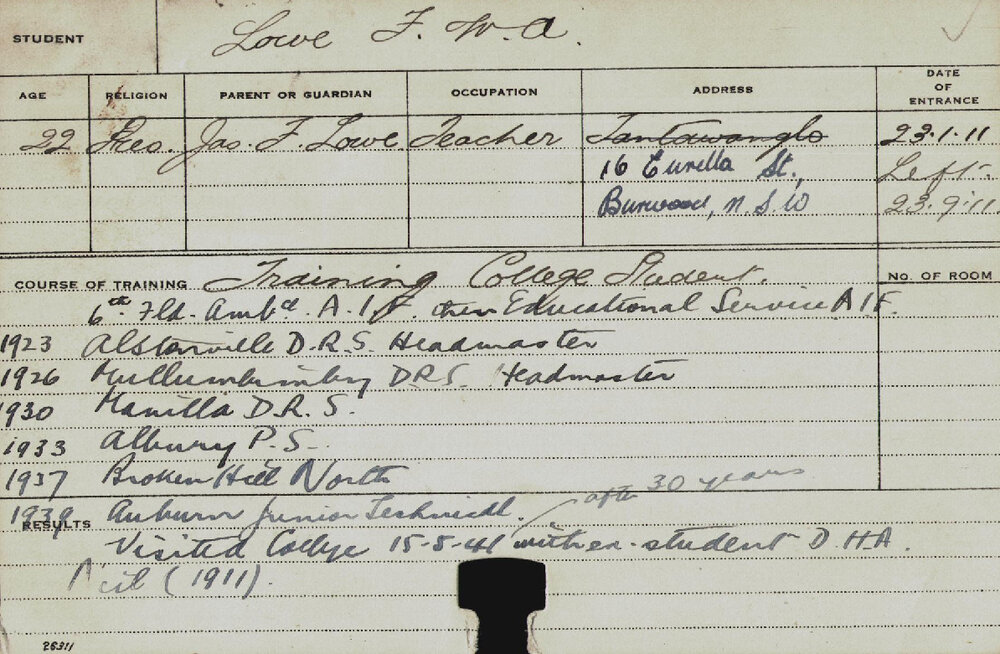 STUDENT Lowe F. W. A.
AGE RELIGION PARENT OR GUARDIAN OCCUPATION ADDRESS DATE OF ENTRANCE
22 Pres. Jas. F. Lowe Teacher Tantawanglo 23.1.11
16 Eurella St., Left.
Burwood, N.S.W 23.9.11
COURSE OF TRAINING Training College Student. No. OF ROOM
6th Fld. Ambce. A.I.F. then Educational Service A I F.
1923 Alstonville D.R.S. Headmaster
1926 Mullumbimby D.R.S. Headmaster
1930 Manilla D.R.S.
1933 Albury P.S.
1937 Broken Hill North
after 30 years
1939 Auburn Junior Technical.
RESULTS
Visited College 15-5-41 with ex-student D.H.A.
(1911).
26311